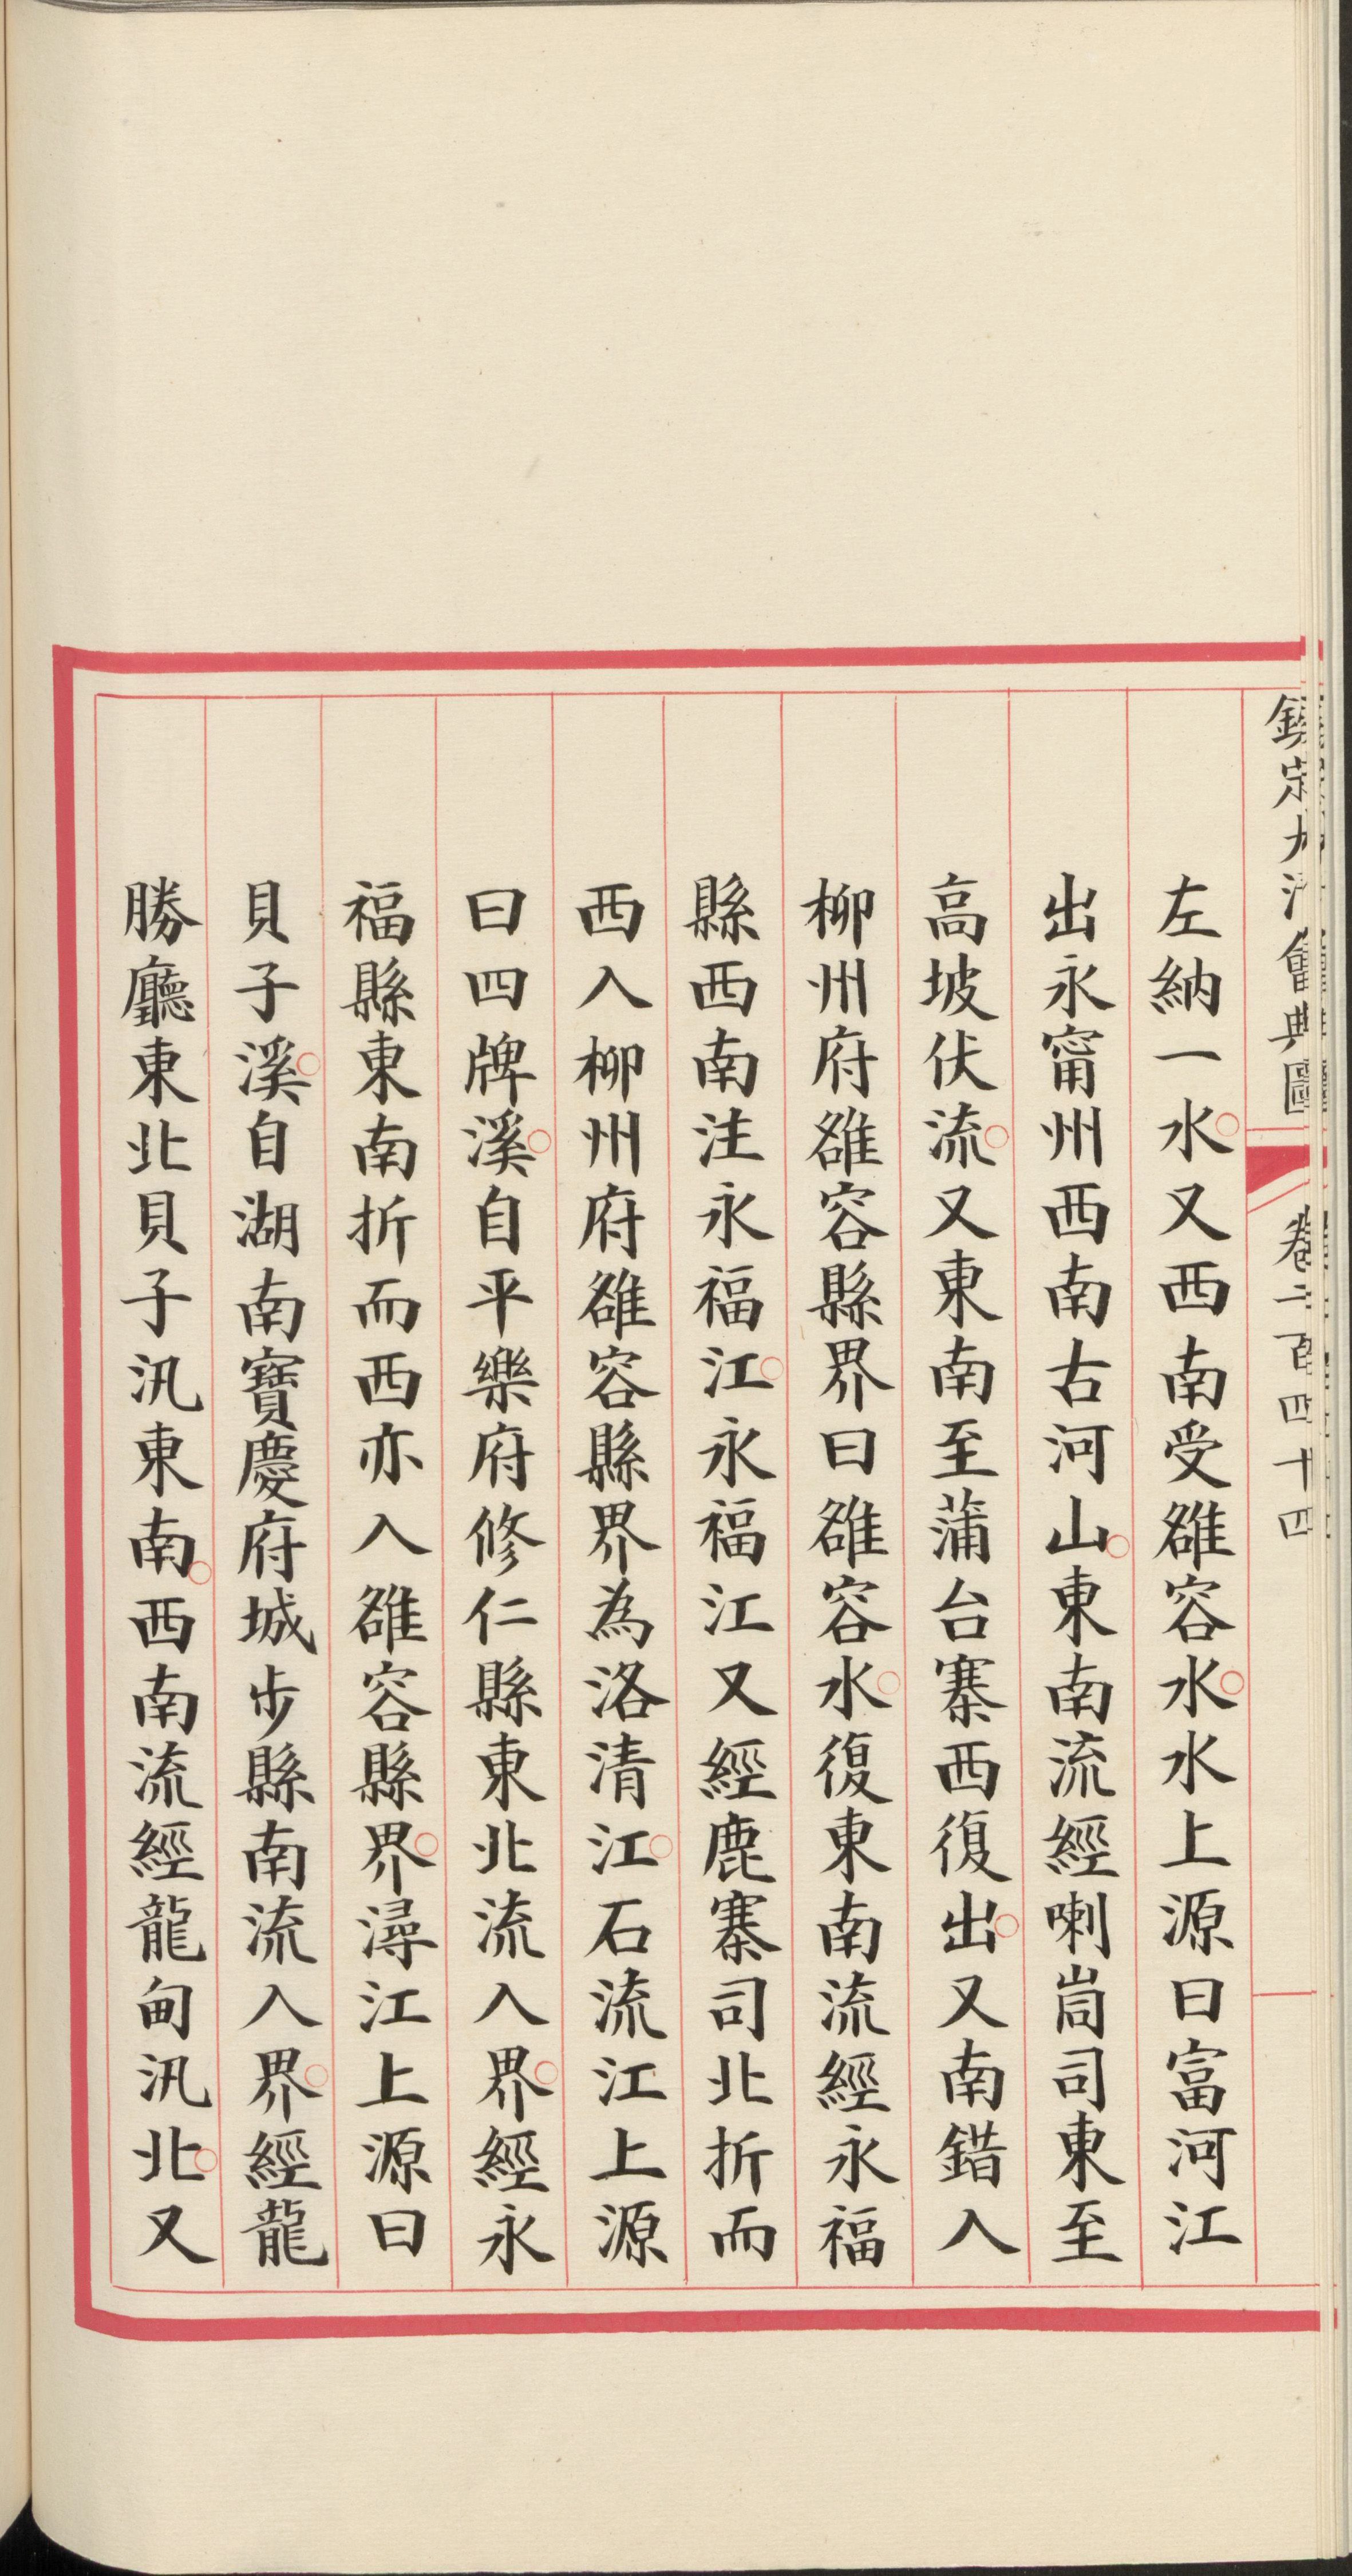 欽定大清會典圖 卷二百四十四
左納一水又西南受雒容水水上源曰富河江
出永甯州西南古河山東南流經喇峝司東至
高坡伏流又東南至蒲台寨西復出又南錯入
柳州府雒容縣界曰雒容水復東南流經永福
縣西南注永福江永福江又經鹿寨司北折而
西入柳州府雒容縣界為洛清江石流江上源
曰四牌溪自平樂府修仁縣東北流入界經永
福縣東南折而西亦入雒容縣界潯江上源曰
貝子溪自湖南寶慶府城步縣南流入界經龍
勝廳東北貝子汛東南西南流經龍甸汛北又